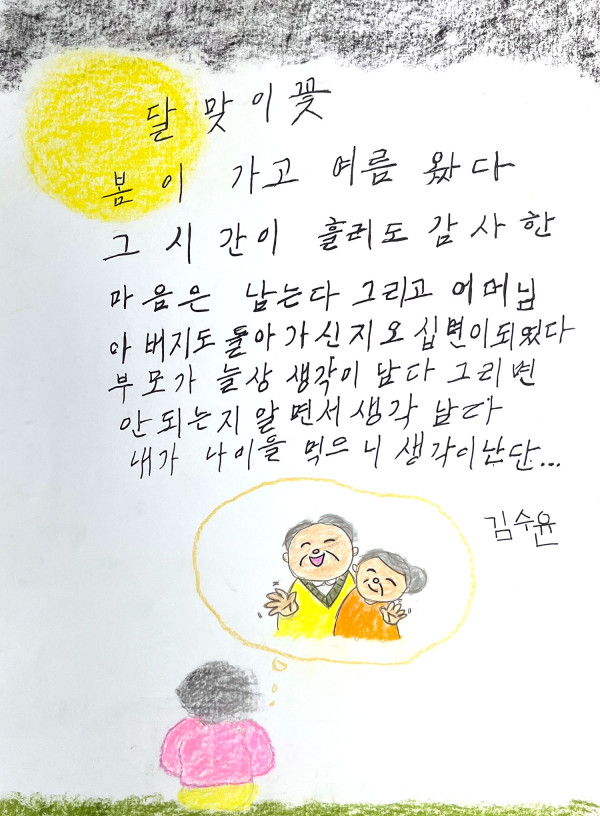 달맞이꽃
봄이 가고 여름 왔다
그 시간이 흘러도 감사한
마음은 남는다 그리고 어머님
아버지도 돌아가신지 오십변이되었다
부모가 늘상 생각이 남다 그리면
안되는지 알면서 생각 남다
내가 나이을 먹으니 생각이난단...
김수윤